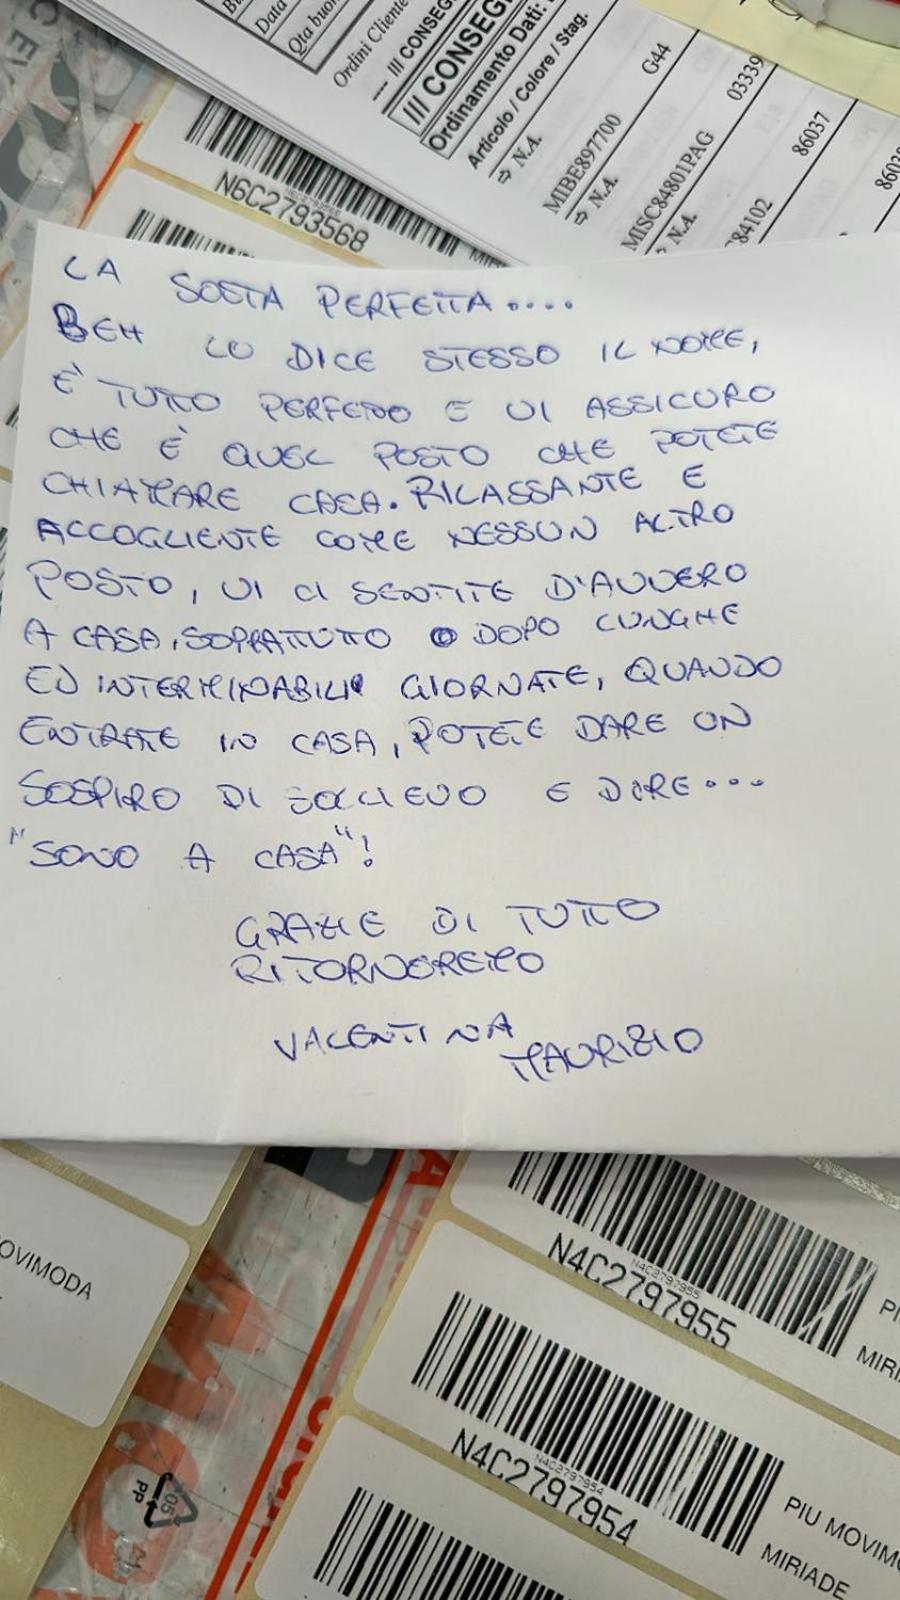 Data
Qta buon
Ordini Cliente
III CONSEG
III CONSEG
Ordinamento Dati:
Articolo / Colore / Stag.
⇨ N.A.
MIBE897700 G44
⇨ N.A.
MISC84801PAG 03339
⇨ N.A.
84102 86037
N6C2793568
LA SOSTA PERFETTA....
BEH LO DICE STESSO IL NOME,
E' TUTTO PERFETTO E VI ASSICURO
CHE È QUEL POSTO CHE POTETE
CHIAMARE CASA. RILASSANTE E
ACCOGLIENTE COME NESSUN ALTRO
POSTO, VI CI SENTITE D'AVVERO
A CASA, SOPRATTUTTO DOPO LUNGHE
ED INTERMINABILI GIORNATE, QUANDO
ENTRATE IN CASA, POTETE DARE UN
SOSPIRO DI SOLLIEVO E DIRE...
"SONO A CASA"!
GRAZIE DI TUTTO
RITORNEREMO
VALENTINA
MAURIZIO
OVIMODA
N4C2797955
N4C2797955
PI
MIRI
N4C2797954
N4C2797954
PIU MOVIM
MIRIADE
05
PP